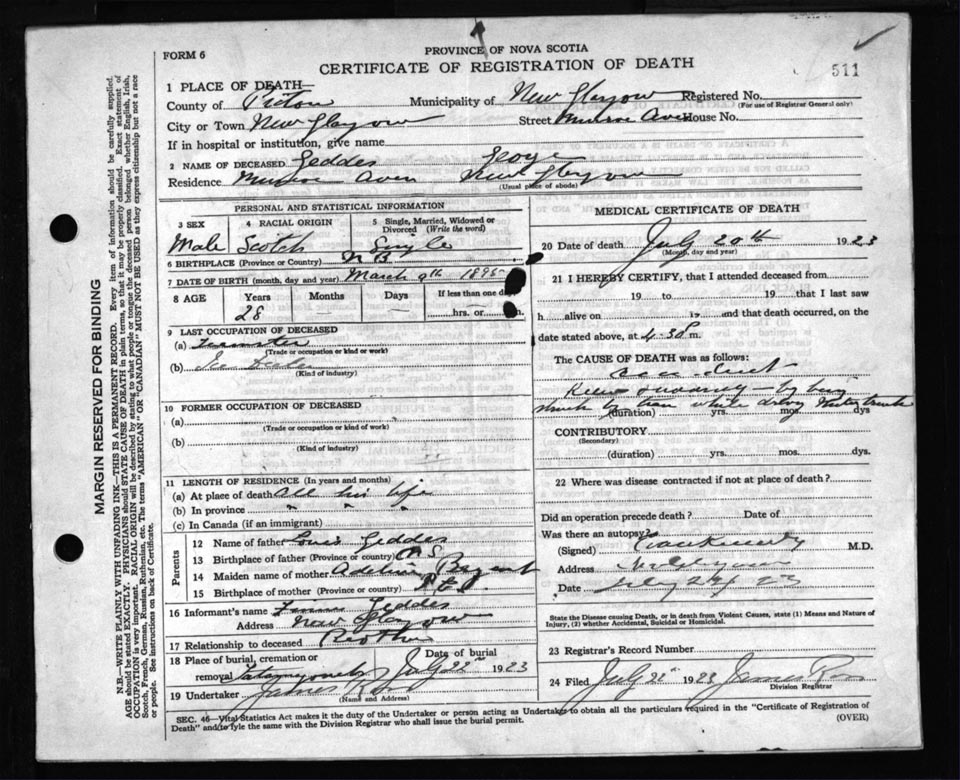 FORM 6
PROVINCE OF NOVA SCOTIA
CERTIFICATE OF REGISTRATION OF DEATH
511
1 PLACE OF DEATH—
County of Pictou Municipality of New Glasgow Registered No.
(For use of Registrar General only)
City or Town New Glasgow Street Munroe Aven House No.
If in hospital or institution, give name
2 NAME OF DECEASED Geddes George
Residence Munroe Aven New Glasgow
(Usual place of abode)
PERSONAL AND STATISTICAL INFORMATION
3 SEX 4 RACIAL ORIGIN 5 Single, Married, Widowed or Divorced (Write the word)
Male Scotch Single
6 BIRTHPLACE (Province or Country) N B
7 DATE OF BIRTH (month, day and year) March 9th 1895
8 AGE Years Months Days If less than one day
28 hrs. or
9 LAST OCCUPATION OF DECEASED
(a) Teamster
(Trade or occupation or kind or work)
(b) Ice Dealer
(Kind of industry)
10 FORMER OCCUPATION OF DECEASED
(a)
(Trade or occupation or kind of work)
(b)
(Kind of industry)
11 LENGTH OF RESIDENCE (In years and months)
(a) At place of death all his life
(b) In province " " "
(c) In Canada (if an immigrant)
Parents
12 Name of father Geddes
13 Birthplace of father (Province or country) N S
14 Maiden name of mother
15 Birthplace of mother (Province or country) P E I
16 Informant's name Geddes
Address New Glasgow
17 Relationship to deceased Brother
18 Place of burial, cremation or removal Date of burial July 22nd 1923
19 Undertaker James Ross
(Name and Address)
MEDICAL CERTIFICATE OF DEATH
20 Date of death July 20th 1923
(Month, day and year)
21 I HEREBY CERTIFY, that I attended deceased from
19 to 19 that I last saw
h alive on 19 and that death occurred, on
date stated above, at 4.30 P m.
The CAUSE OF DEATH was as follows:
accident
Killed — by being
struck by tram while driving truck
(duration) yrs. mos. dys
CONTRIBUTORY
(Secondary)
(duration) yrs. mos. dys.
22 Where was disease contracted if not at place of death?
Did an operation precede death? Date of
Was there an autopsy?
(Signed) M.D.
Address
Date July 23
State the Disease causing Death, or in death from Violent Causes, state (1) Means and Nature of
Injury, (2) whether Accidental, Suicidal or Homicidal.
23 Registrar's Record Number
24 Filed July 22nd 1923 James Ross
Division Registrar
SEC. 46—Vital Statistics Act makes it the duty of the Undertaker or person acting as Undertaker to obtain all the particulars required in the "Certificate of Registration of
Death" and to file the same with the Division Registrar who shall issue the burial permit.
(OVER)
MARGIN RESERVED FOR BINDING
N.B.—WRITE PLAINLY WITH UNFADING INK—THIS IS A PERMANENT RECORD. Every item of information should be carefully supplied.
AGE should be stated EXACTLY. PHYSICIANS should STATE CAUSE OF DEATH in plain terms, so that it may be properly classified. Exact statement of
OCCUPATION is very important. RACIAL ORIGIN will be described by stating to what people or tongue the deceased person belonged whether English, Irish,
Scotch, French, German, Russian, Ruthenian, etc. The terms "AMERICAN" OR "CANADIAN" MUST NOT BE USED as they express citizenship but not a race
or people. See instructions on back of Certificate.